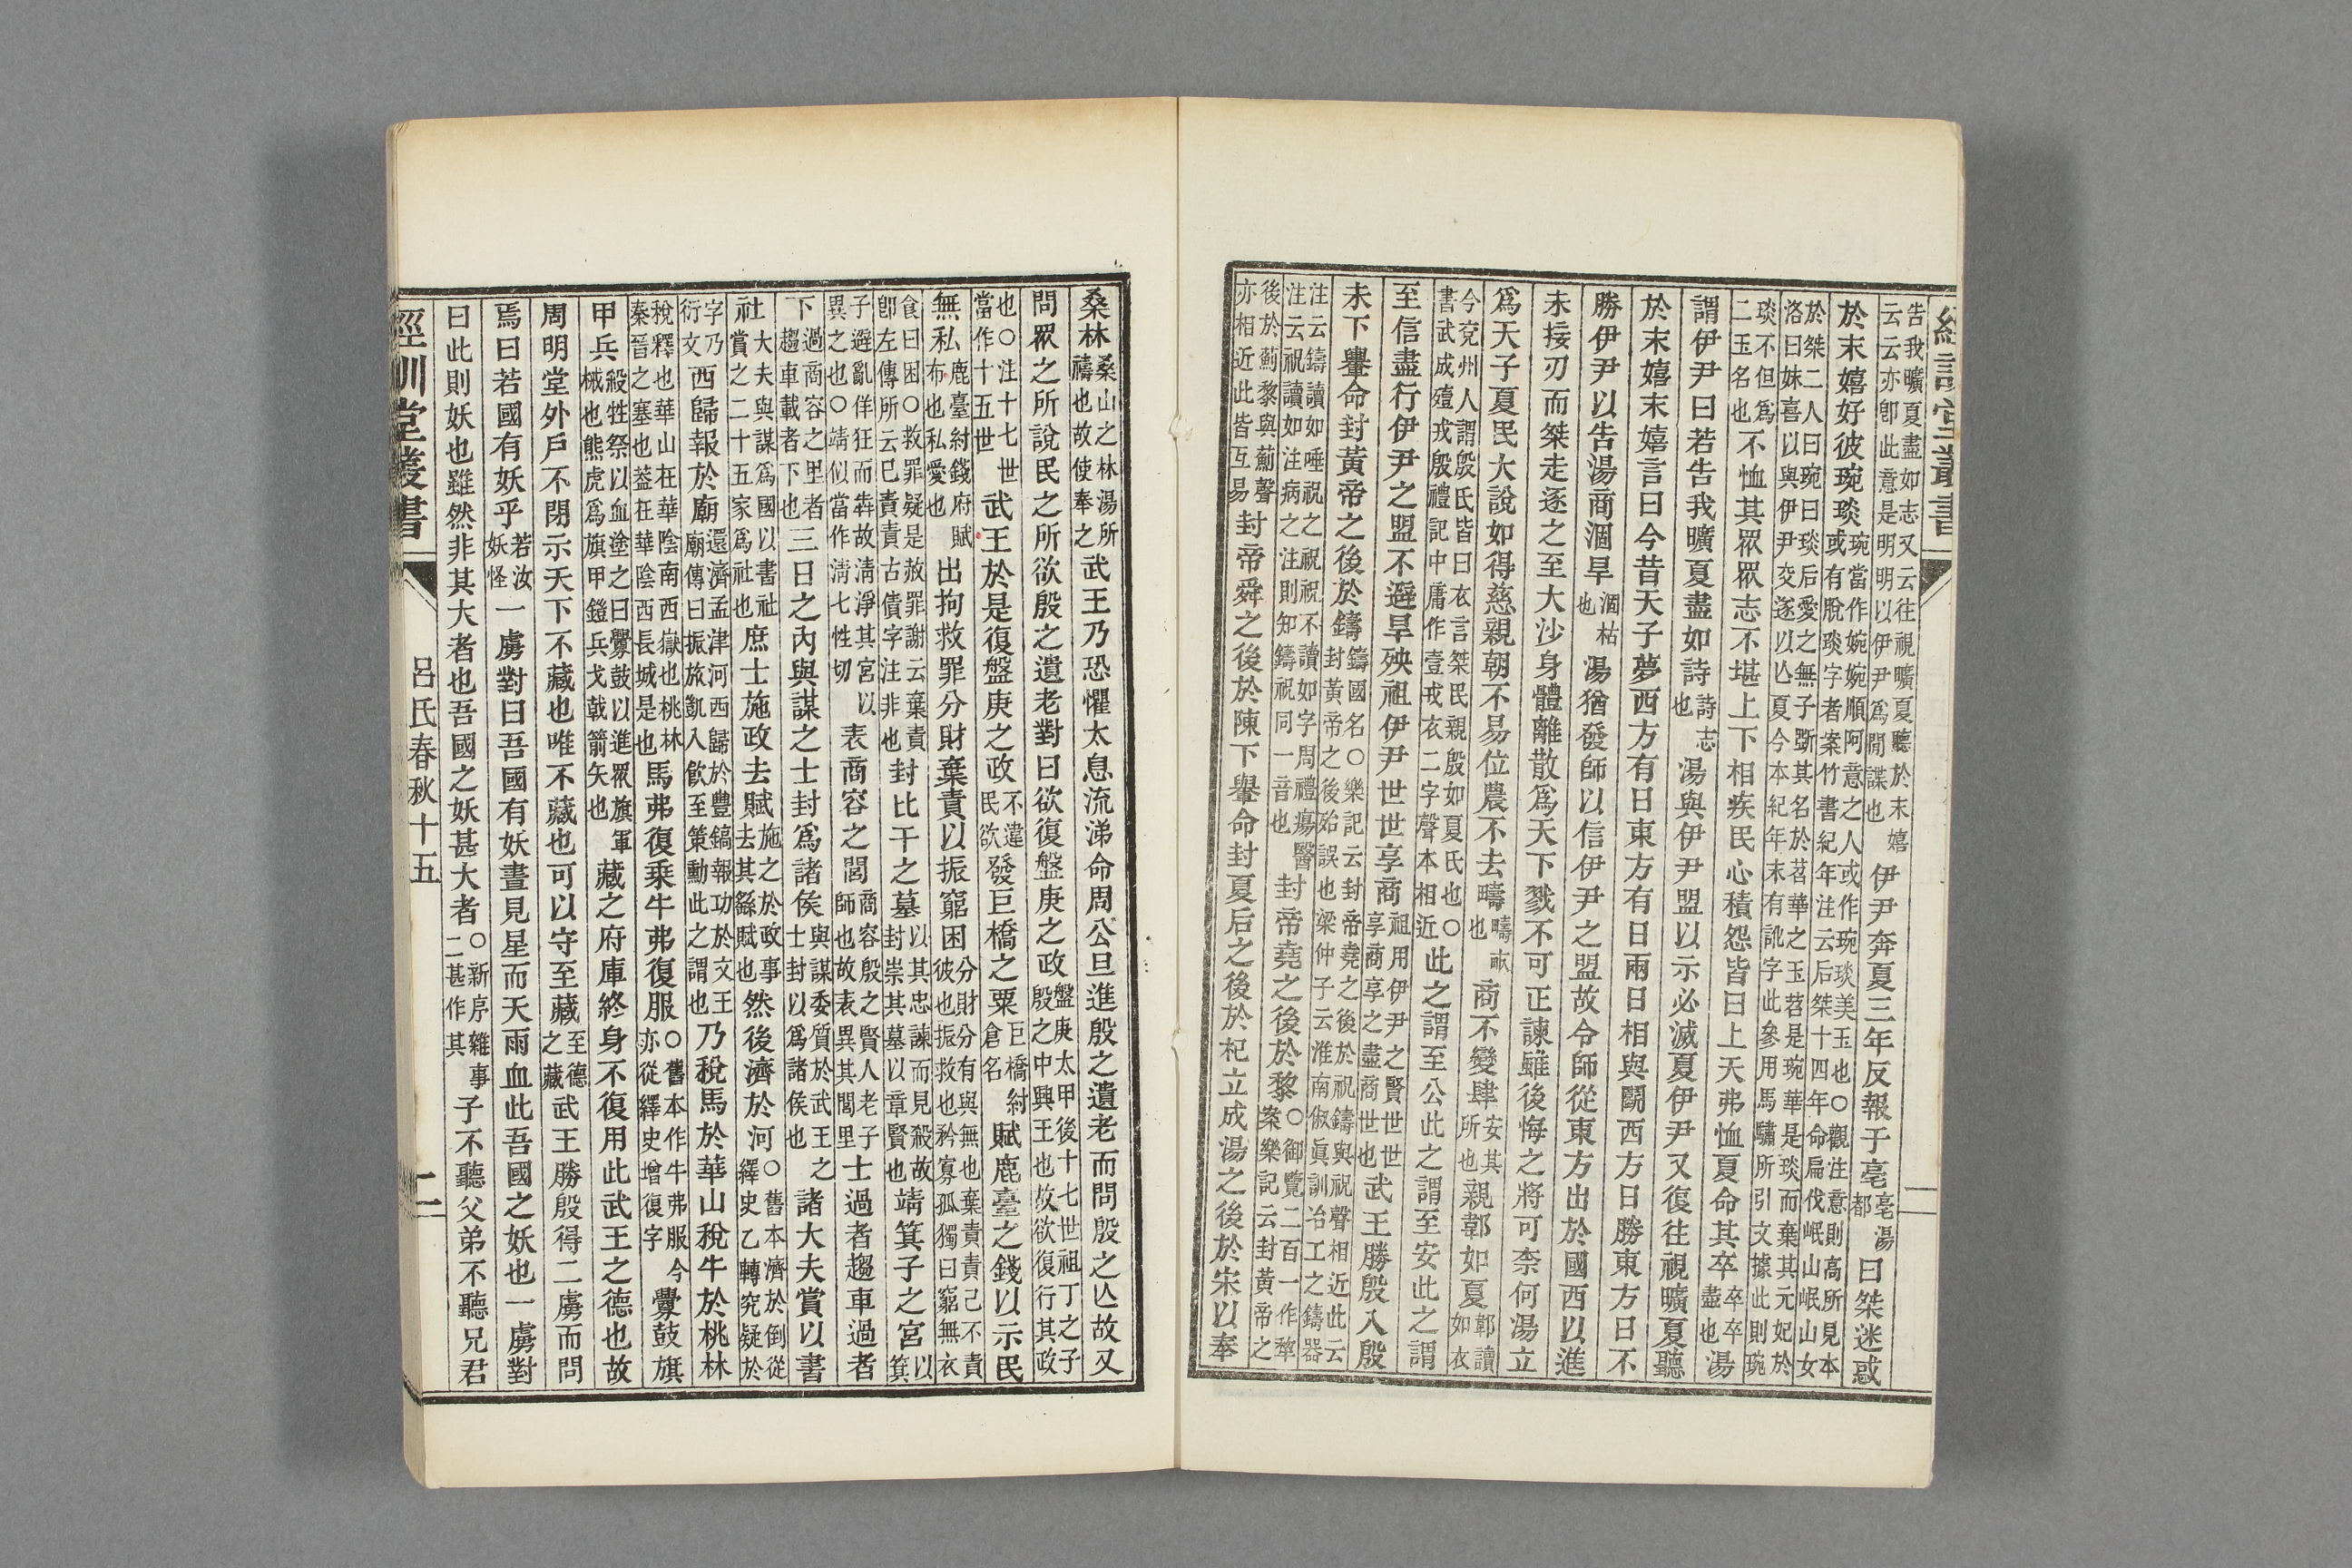 經訓堂叢書
告我曠夏盡如志又云往視曠夏聽於末嬉云云亦卽此意是明明以伊尹爲閒諜也伊尹奔夏三年反報于亳亳湯都曰桀迷惑
於末嬉好彼琬琰琬當作婉婉順阿意之人或作琬琰美玉也○觀注意則高所見本或有脫琰字者案竹書紀年注云后桀十四年命扁伐岷山岷山女
於桀二人曰琬曰琰后愛之無子斲其名於苕華之玉苕是琬華是琰而棄其元妃於洛曰妹喜以與伊尹交遂以亾夏今本紀年末有訛字此參用馬驌所引文據此則琬
琰不但爲二玉名也不恤其眾眾志不堪上下相疾民心積怨皆曰上天弗恤夏命其卒卒卒盡也湯
謂伊尹曰若告我曠夏盡如詩詩志也湯與伊尹盟以示必滅夏伊尹又復往視曠夏聽
於末嬉末嬉言曰今昔天子夢西方有日東方有日兩日相與鬭西方日勝東方日不
勝伊尹以告湯商涸旱涸枯也湯猶發師以信伊尹之盟故令師從東方出於國西以進
未接刃而桀走逐之至大沙身體離散爲天下戮不可正諫雖後悔之將可柰何湯立
爲天子夏民大說如得慈親朝不易位農不去疇疇畝也商不變肆安其所也親郼如夏郼讀如衣
今兗州人謂殷氏皆曰衣言桀民親殷如夏氏也○書武成殪戎殷禮記中庸作壹戎衣二字聲本相近此之謂至公此之謂至安此之謂
至信盡行伊尹之盟不避旱殃祖伊尹世世享商祖用伊尹之賢世世享商享之盡商世也武王勝殷入殷
未下轝命封黃帝之後於鑄鑄國名○樂記云封帝堯之後於祝鑄與祝聲相近此云封黃帝之後殆誤也梁仲子云淮南俶眞訓冶工之鑄器
注云鑄讀如唾祝之祝祝不讀如字周禮瘍醫注云祝讀如注病之注則知鑄祝同一音也封帝堯之後於黎○御覽二百一作犂案樂記云封黃帝之
後於薊黎與薊聲亦相近此皆互易封帝舜之後於陳下轝命封夏后之後於杞立成湯之後於宋以奉
桑林桑山之林湯所禱也故使奉之武王乃恐懼太息流涕命周公旦進殷之遺老而問殷之亾故又
問眾之所說民之所欲殷之遺老對曰欲復盤庚之政盤庚太甲後十七世祖丁之子殷之中興王也故欲復行其政
也○注十七世當作十五世武王於是復盤庚之政不違民欲發巨橋之粟巨橋紂倉名賦鹿臺之錢以示民
無私鹿臺紂錢府賦布也私愛也出拘救罪分財棄責以振窮困分財分有與無也棄責責己不責彼也振救也矜寡孤獨曰窮無衣
食曰困○救罪疑是赦罪謝云棄責卽左傳所云已責責古債字注非也封比干之墓以其忠諫而見殺故封崇其墓以章賢也靖箕子之宮以箕
子避亂佯狂而犇故淸淨其宮以異之也○靖似當作淸七性切表商容之閭商容殷之賢人老子師也故表異其閭里士過者趨車過者
下過商容之里者趨車載者下也三日之內與謀之士封爲諸侯與謀委質於武王之士封以爲諸侯也諸大夫賞以書
社大夫與謀爲國以書社賞之二十五家爲社也庶士施政去賦施之於政事去其繇賦也然後濟於河○舊本濟於倒從繹史乙轉究疑於
字乃衍文西歸報於廟還濟孟津河西歸於豐鎬報功於文王廟傳曰振旅凱入飮至策勳此之謂也乃稅馬於華山稅牛於桃林
稅釋也華山在華陰南西嶽也桃林秦晉之塞也葢在華陰西長城是也馬弗復乘牛弗復服○舊本作牛弗服今亦從繹史增復字釁鼓旗
甲兵殺牲祭以血塗之曰釁鼓以進眾旗軍械也熊虎爲旗甲鎧兵戈戟箭矢也藏之府庫終身不復用此武王之德也故
周明堂外戶不閉示天下不藏也唯不藏也可以守至藏至德之藏武王勝殷得二虜而問
焉曰若國有妖乎若汝妖怪一虜對曰吾國有妖晝見星而天雨血此吾國之妖也一虜對
曰此則妖也雖然非其大者也吾國之妖甚大者○新序雜事二甚作其子不聽父弟不聽兄君
經訓堂叢書
呂氏春秋十五
二